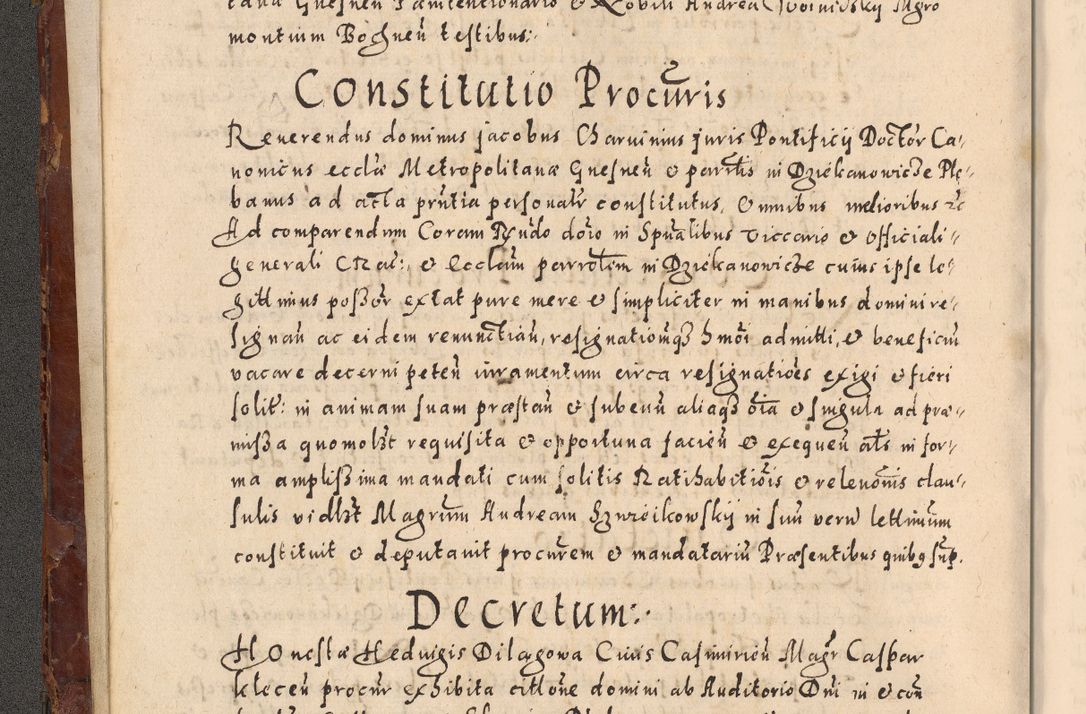 montium Bochneū testibus:
Constitutio Procūris
Reuerendus dominus jacobus Charuinius juris Pontificij Doctor Ca-
nonicus ecclæ Metropolitanæ Gnesneū & parrlis in Dziekanowicze Ple-
banus ad acta prntia personalr constitutus, & mnibus melioribus &c
Ad comparendum Coram Rndo doīo in Spūalibus Viccario & Officiali-
generali Crac: & Ecclam parrolem in Dziekanowicze cuius ipse le-
gittimus possor extat pure mere & simpliciter in manibus domini re-
signaū ac eidem renunctiaū, resignationēqz hmōi admitti, & beneficiū
vacare decerni peteū iuramentum circa resignatiōes exigi & fieri
solit: in animam suam præstaū & subeuū aliaqz oīa & singula ad præ-
missa quomolzt requisita & opportuna facieū & exequeū als in for-
ma amplissima mandati cum solitis Ratihabitiōis & releuōnis clau-
sulis vidlzt Magrum Andream Szwieikowskij in suū verū lettimum
constituit & deputauit procurem & mandatariū Præsentibus quibq sup.
Decretum:
Honestæ Heduigis Dilagowa Ciuis Casimirieū Magr Caspar
kleceū procur exhibita cittōne domini ab Auditorio Dni in & con